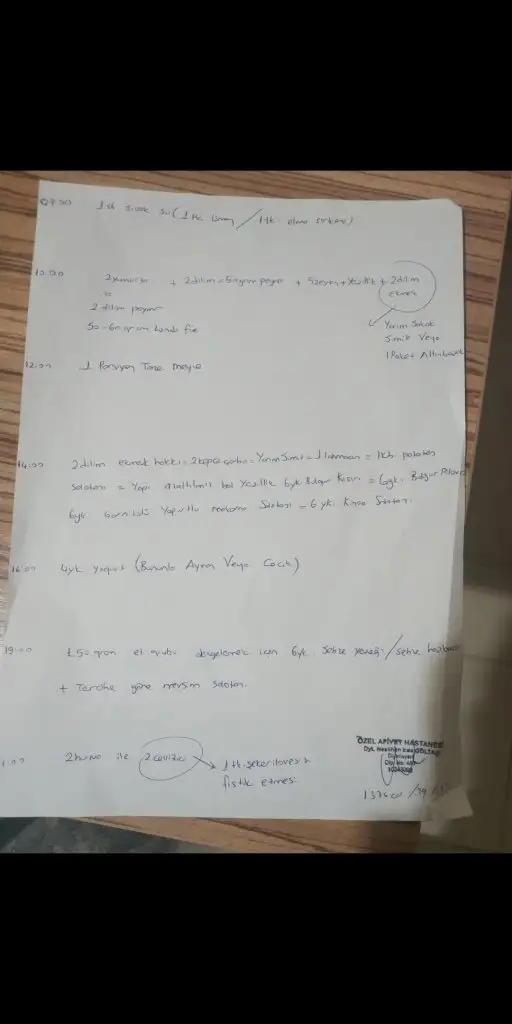 07:30 1 sb Sıcak su (1 tk limon / 1 tk elma sirkesi)
10:00 2 yumurta + 2 dilim = 60 gram peynir + 5 zeytin + Yeşillik + 2 dilim ekmek
2 dilim peynir
50-60 gram füme
Yarım Sokak
Simiti Veya
1 Paket Altınbaşak
12:00 1 Porsiyon Taze meyve
14:00 2 dilim ekmek hakkı = 2 kepçe çorba = Yarım Simit = 1 lahmacun = patates
Salatası = bol Yeşillik 6 yk Bulgur Kısırı = 6 yk. Bulgur Pilavı
6 yk. Yoğurtlu makarna Salatası = 6 yk. Kinoa Salatası.
16:00 4 yk Yoğurt (Bununla Ayran Veya Cacık)
19:00 150 gram et grubu dengelemek için 6 yk. Sebze yemeği / Sebze
+ Tercihe göre mevsim Salatası.
2 hurma ile 2 ceviz
1 tk şeker ilavesiz
fıstık ezmesi
ÖZEL AFİYET HASTANESİ
Dyt.
Diyetisyen